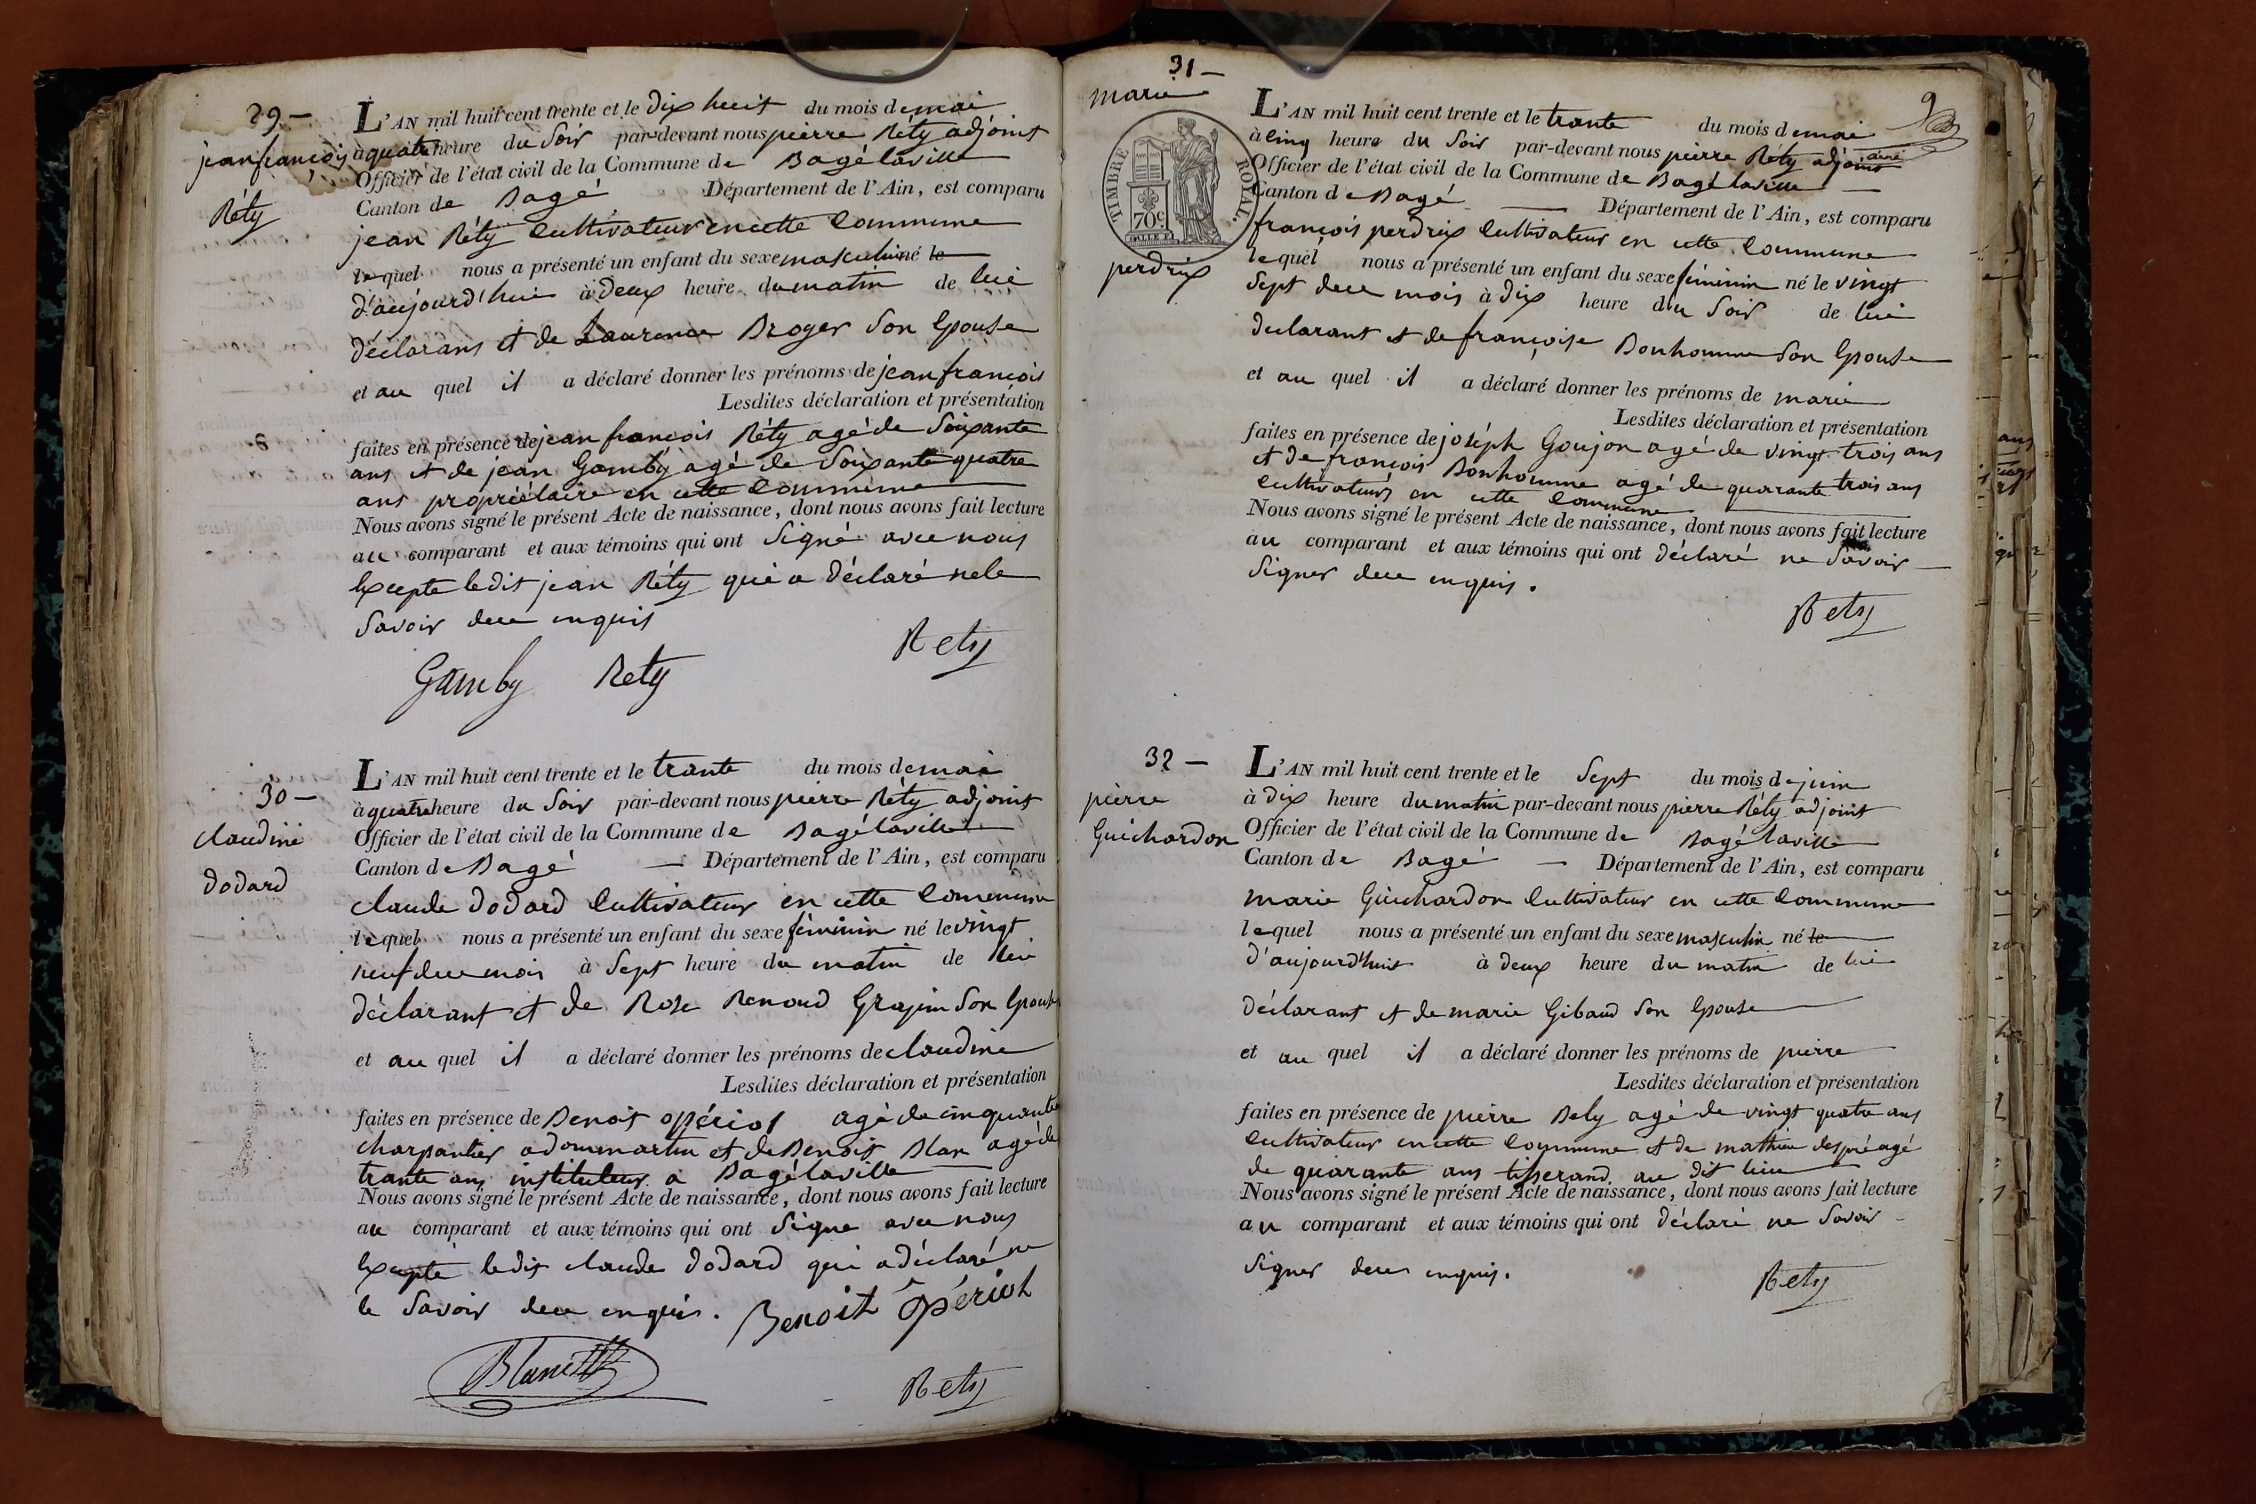 29 —
jean françois
Réty
L'AN mil huit cent trente et le dix huit du mois de mai
à quatre heure du Soir par-devant nous pierre Réty adjoint
Officier de l'état civil de la Commune de Bagélaville
Canton de Bagé Département de l'Ain, est comparu
jean Réty Cultivateur en cette Commune
lequel nous a présenté un enfant du sexe masculin né le
d'aujourd'hui à deux heure du matin de lui
déclarans et de Laurence Broyer Son Epouse
et au quel il a déclaré donner les prénoms de jean françois
Lesdites déclaration et présentation
faites en présence de jean françois Réty agé de Soixante
ans et de jean Gamby agé de Soixante quatre
ans propriétaire en cette Commune
Nous avons signé le présent Acte de naissance, dont nous avons fait lecture
au comparant et aux témoins qui ont Signé avec nous
Excepte ledit jean Réty qui a déclaré nele
Savoir dece enquis
Gamby Rety Rety
30 —
claudine
dodard
L'AN mil huit cent trente et le trante du mois de mai
à quatre heure du Soir par-devant nous pierre Réty adjoint
Officier de l'état civil de la Commune de Bagélaville
Canton de Bagé — Département de l'Ain, est comparu
claude dodard Cultivateur en cette Commune
lequel nous a présenté un enfant du sexe féminin né le vingt
neuf dece mois à Sept heure du matin de lui
déclarant et de Rose Renoud Grapin Son Epouse
et au quel il a déclaré donner les prénoms de claudine
Lesdites déclaration et présentation
faites en présence de Benoit opériol agé de cinquante
charpantier a dommartin et de Benoit Blan agé de
trante ans instituteur a Bagélaville
Nous avons signé le présent Acte de naissance, dont nous avons fait lecture
au comparant et aux témoins qui ont Signe avec nous
Excepte ledit claude dodard qui a déclaré ne
le Savoir dece enquis. Benoit Opériol
Rety
31 —
marie
TIMBRE ROYAL
70c
perdrix
9
L'AN mil huit cent trente et le trante du mois de mai
à Cinq heure du Soir par-devant nous pierre Réty adjoint
Officier de l'état civil de la Commune de Bagélaville
Canton de Bagé — Département de l'Ain, est comparu
françois perdrix Cultivateur en cette Commune
lequel nous a présenté un enfant du sexe féminin né le vingt
Sept dece mois à dix heure du Soir de lui
declarant et de françoise Bonhomme Son Epouse
et au quel il a déclaré donner les prénoms de marie
Lesdites déclaration et présentation
faites en présence de joséph Goujon agé de vingt trois ans
et de françois Bonhomme agé de quarante trois ans
Cultivateurs en cette Commune
Nous avons signé le présent Acte de naissance, dont nous avons fait lecture
au comparant et aux témoins qui ont déclaré ne Savoir
Signer dece enquis.
Rety
32 —
pierre
Guichardon
L'AN mil huit cent trente et le Sept du mois de juin
à dix heure du matin par-devant nous pierre Réty adjoint
Officier de l'état civil de la Commune de Bagélaville
Canton de Bagé — Département de l'Ain, est comparu
marie Guichardon Cultivateur en cette Commune
lequel nous a présenté un enfant du sexe masculin né le
d'aujourd'huit à deux heure du matin de lui
déclarant et de marie Gibaud Son Epouse
et au quel il a déclaré donner les prénoms de pierre
Lesdites déclaration et présentation
faites en présence de pierre Bely agé de vingt quatre ans
Cultivateur en cette Commune et de mathieu despré agé
de quarante ans tisserand au dit lieu
Nous avons signé le présent Acte de naissance, dont nous avons fait lecture
au comparant et aux témoins qui ont déclaré ne Savoir
Signer dece enquis.
Rety